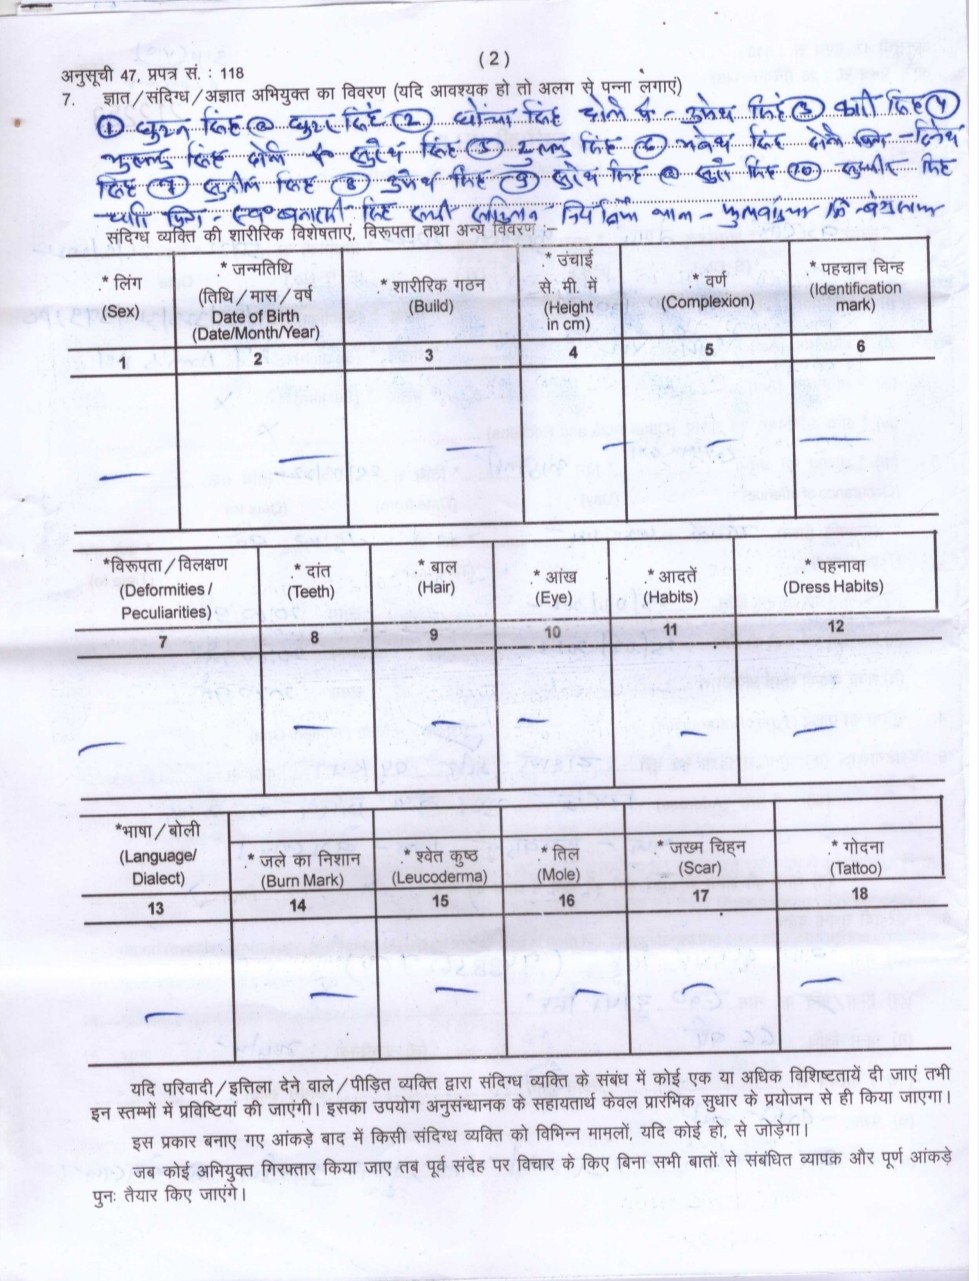 (2)
अनुसूची 47, प्रपत्र सं. : 118
7. ज्ञात/संदिग्ध/अज्ञात अभियुक्त का विवरण (यदि आवश्यक हो तो अलग से पन्ना लगाएं)
① सिंह @ सिंह ② सिंह दोनों पे०- उमेश सिंह ③ सिंह ④
सिंह दोनों सिंह ⑤ सिंह ⑥ सिंह दोनों
सिंह ⑦ सुनील सिंह ⑧ उमेश सिंह ⑨ सिंह @ सिंह ⑩ सिंह
सिंह थाना - जि०
संदिग्ध व्यक्ति की शारीरिक विशेषताएं, विरूपता तथा अन्य विवरण :-
* लिंग (Sex)
* जन्मतिथि (तिथि/मास/वर्ष Date of Birth (Date/Month/Year)
* शारीरिक गठन (Build)
* उंचाई से. मी. में (Height in cm)
* वर्ण (Complexion)
* पहचान चिन्ह (Identification mark)
1 2 3 4 5 6
*विरूपता/विलक्षण (Deformities/ Peculiarities)
* दांत (Teeth)
* बाल (Hair)
* आंख (Eye)
* आदतें (Habits)
* पहनावा (Dress Habits)
7 8 9 10 11 12
*भाषा/बोली (Language/ Dialect)
* जले का निशान (Burn Mark)
* श्वेत कुष्ठ (Leucoderma)
* तिल (Mole)
* जख्म चिह्न (Scar)
* गोदना (Tattoo)
13 14 15 16 17 18
यदि परिवादी/इत्तिला देने वाले/पीड़ित व्यक्ति द्वारा संदिग्ध व्यक्ति के संबंध में कोई एक या अधिक विशिष्टतायें दी जाएं तभी
इन स्तम्भों में प्रविष्टियां की जाएंगी। इसका उपयोग अनुसंन्धानक के सहायतार्थ केवल प्रारंभिक सुधार के प्रयोजन से ही किया जाएगा।
इस प्रकार बनाए गए आंकड़े बाद में किसी संदिग्ध व्यक्ति को विभिन्न मामलों, यदि कोई हो, से जोड़ेगा।
जब कोई अभियुक्त गिरफ्तार किया जाए तब पूर्व संदेह पर विचार के किए बिना सभी बातों से संबंधित व्यापक और पूर्ण आंकड़े
पुनः तैयार किए जाएंगे।